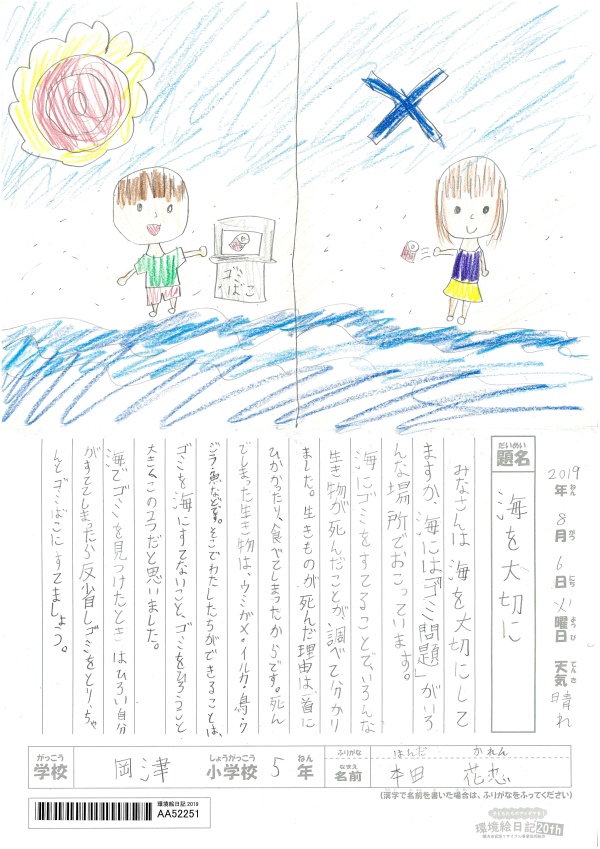 ゴミ
ばこ
2019年ねん 8月がつ 6日にち 火曜日ようび 天気てんき 晴れ
だいめい
題名
海を大切に
みなさんは海を大切にして
ますか、海には「ゴミ問題」がいろ
んな場所でおこっています。
海にゴミをすてることで、いろんな
生き物が死んだことが調べて分かり
ました。生きものが死んだ理由は、首に
ひかかったり、食べてしまったからです。死ん
でしまった生き物は、ウミガメ・イルカ・鳥・ク
ジラ・魚などです。そこでわたしたちができることは、
ゴミを海にすてないこと、ゴミをひろうこと
大きくこの2つだと思いました。
海でゴミを見つけたときはひろい自分
がすててしまったら反省しゴミをとり、ちゃ
んとゴミばこにすてましょう。
がっこう しょうがっこう ねん
学校 岡津 小学校 5年
ふりがな ほんだ かれん
なまえ
名前 本田 花恋
(漢字で名前を書いた場合は、ふりがなをふってください)
環境絵日記2019
AA52251
環境絵日記20th